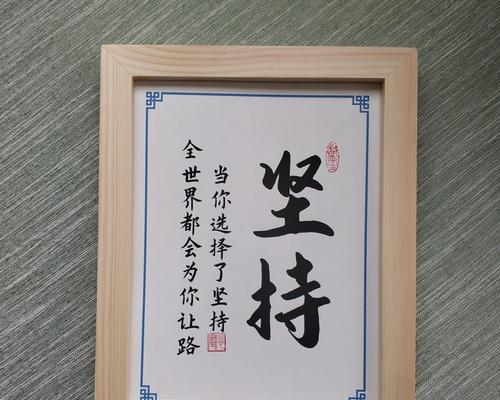 坚持
当你选择了坚持
全世界都会为你让路